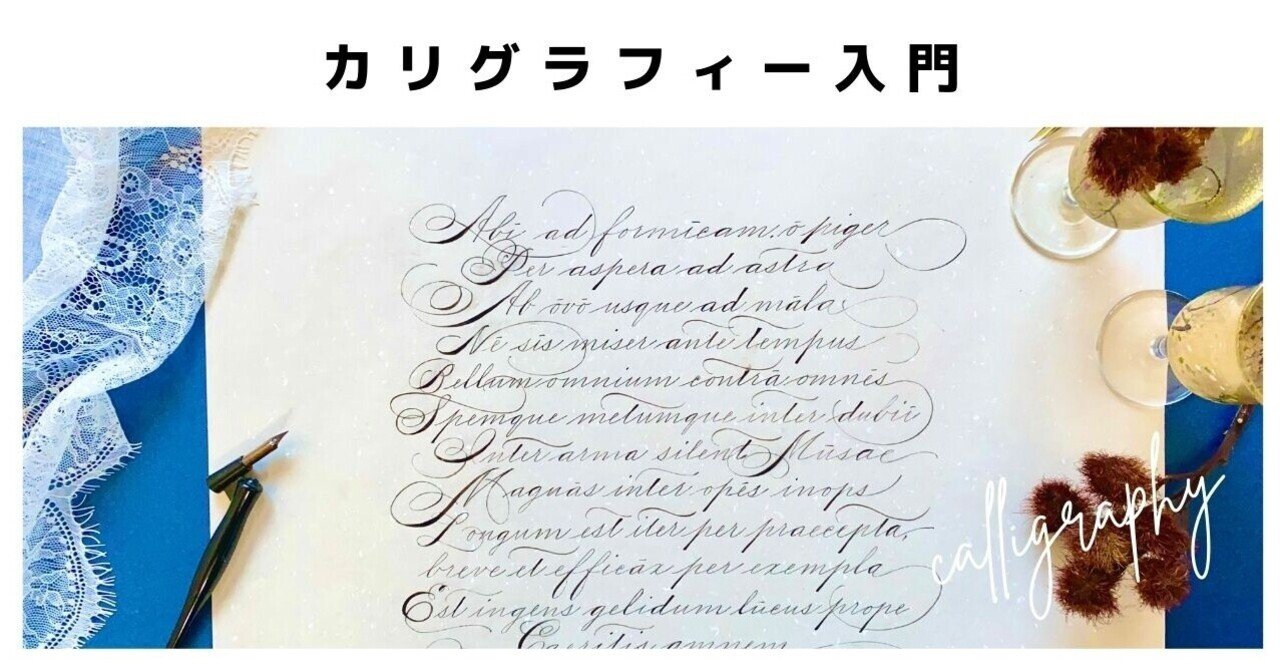 カリグラフィー入門
Abī ad formīcam, ō piger
Per aspera ad astra
Ab ōvō usque ad māla
Nē sīs miser ante tempus
Bellum omnium contrā omnēs
Spemque metumque inter dubiī
Inter arma silent Mūsae
Magnās inter opēs inops
Longum est iter per praecepta,
breve et efficāx per exempla
Est ingens gelidum lūcus prope
Caeritis amnem
calligraphy